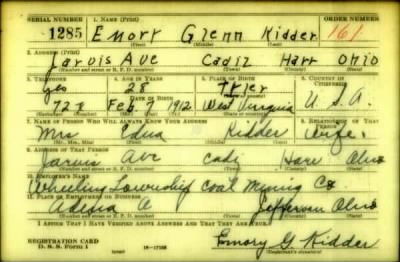 SERIAL NUMBER 1. NAME (Print) ORDER NUMBER
1285 Emory Glenn Kidder 161
(First) (Middle) (Last)
2. ADDRESS (Print)
Jarvis Ave Cadiz Harr Ohio
(Number and street or R. F. D. number) (Town) (County) (State)
3. TELEPHONE 4. AGE IN YEARS 5. PLACE OF BIRTH 6. COUNTRY OF CITIZENSHIP
Yes 28 Tyler
728 Feb. 7 1912 West Virginia U. S. A.
7. NAME OF PERSON WHO WILL ALWAYS KNOW YOUR ADDRESS 8. RELATIONSHIP OF THAT PERSON
Mrs Edna Kidder Wife
(Mr., Mrs., Miss) (First) (Middle) (Last)
9. ADDRESS OF THAT PERSON
Jarvis Ave Cadi Harr Ohio
(Number and street or R. F. D. number) (Town) (County) (State)
10. EMPLOYER'S NAME
Wheeling Township Coal Mining Co.
11. PLACE OF EMPLOYMENT OR BUSINESS
Adena O Jefferson Ohio
(Number and street or R. F. D. number) (Town) (County) (State)
I AFFIRM THAT I HAVE VERIFIED ABOVE ANSWERS AND THAT THEY ARE TRUE.
REGISTRATION CARD
D. S. S. Form 1
16-17105
Emory G. Kidder
(Registrant's signature)